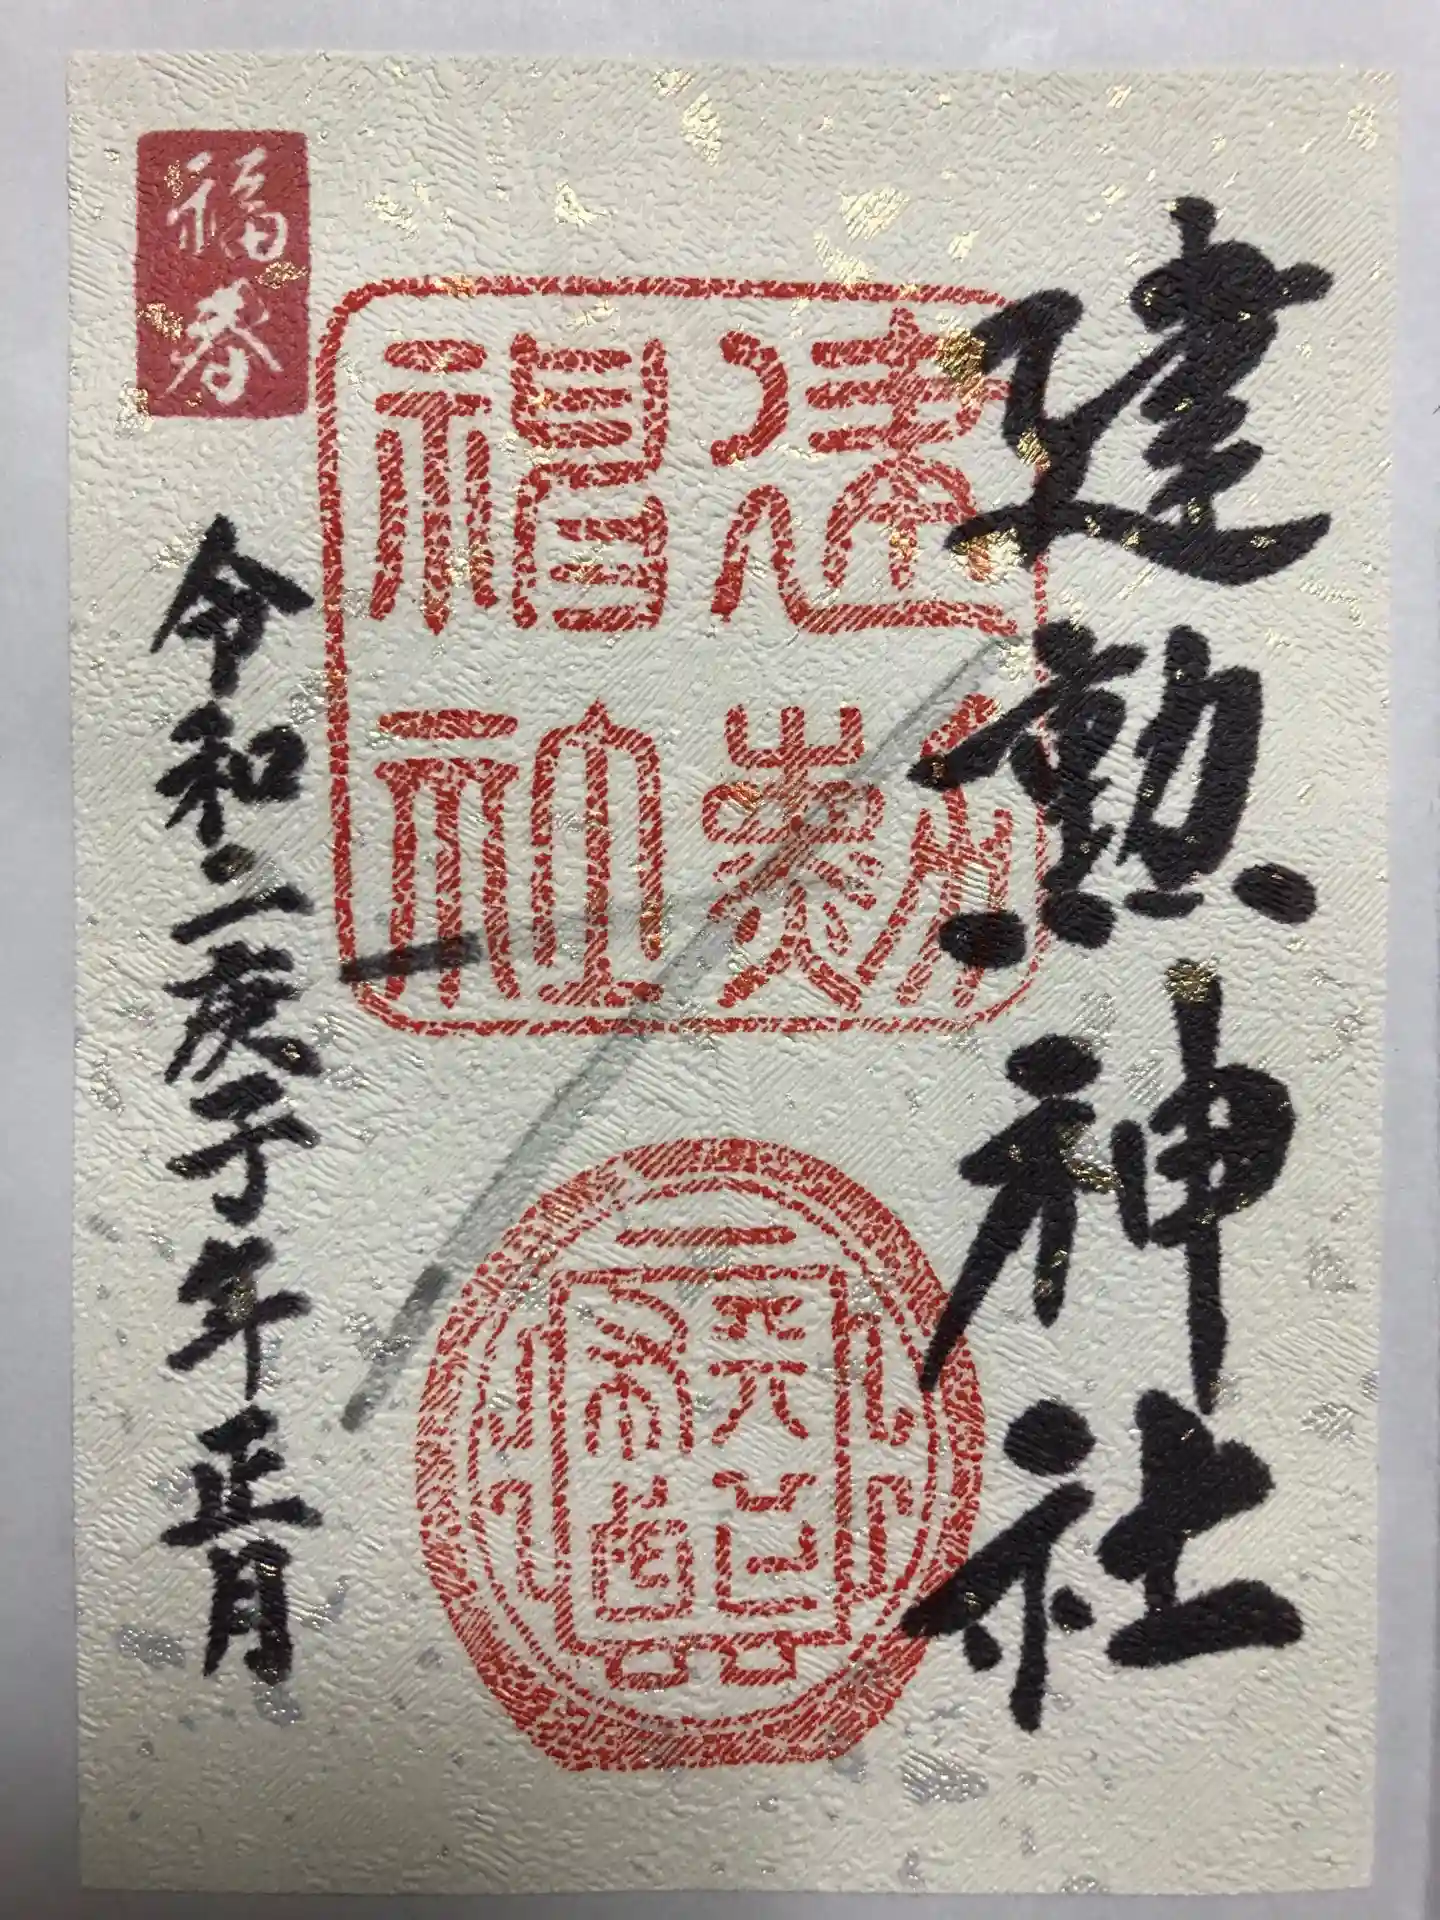 建勲神社
建勲
神社
天下布武
福春
令和二庚子年正月